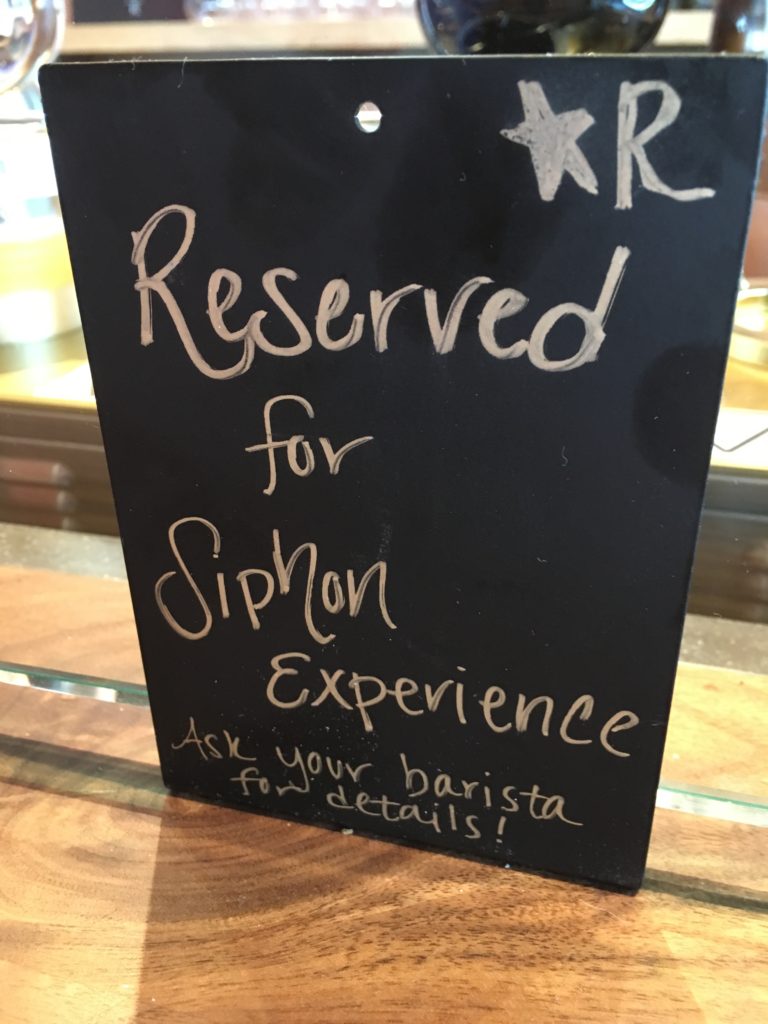 ★R
Reserved
for
Siphon
Experience
Ask your barista
for details!